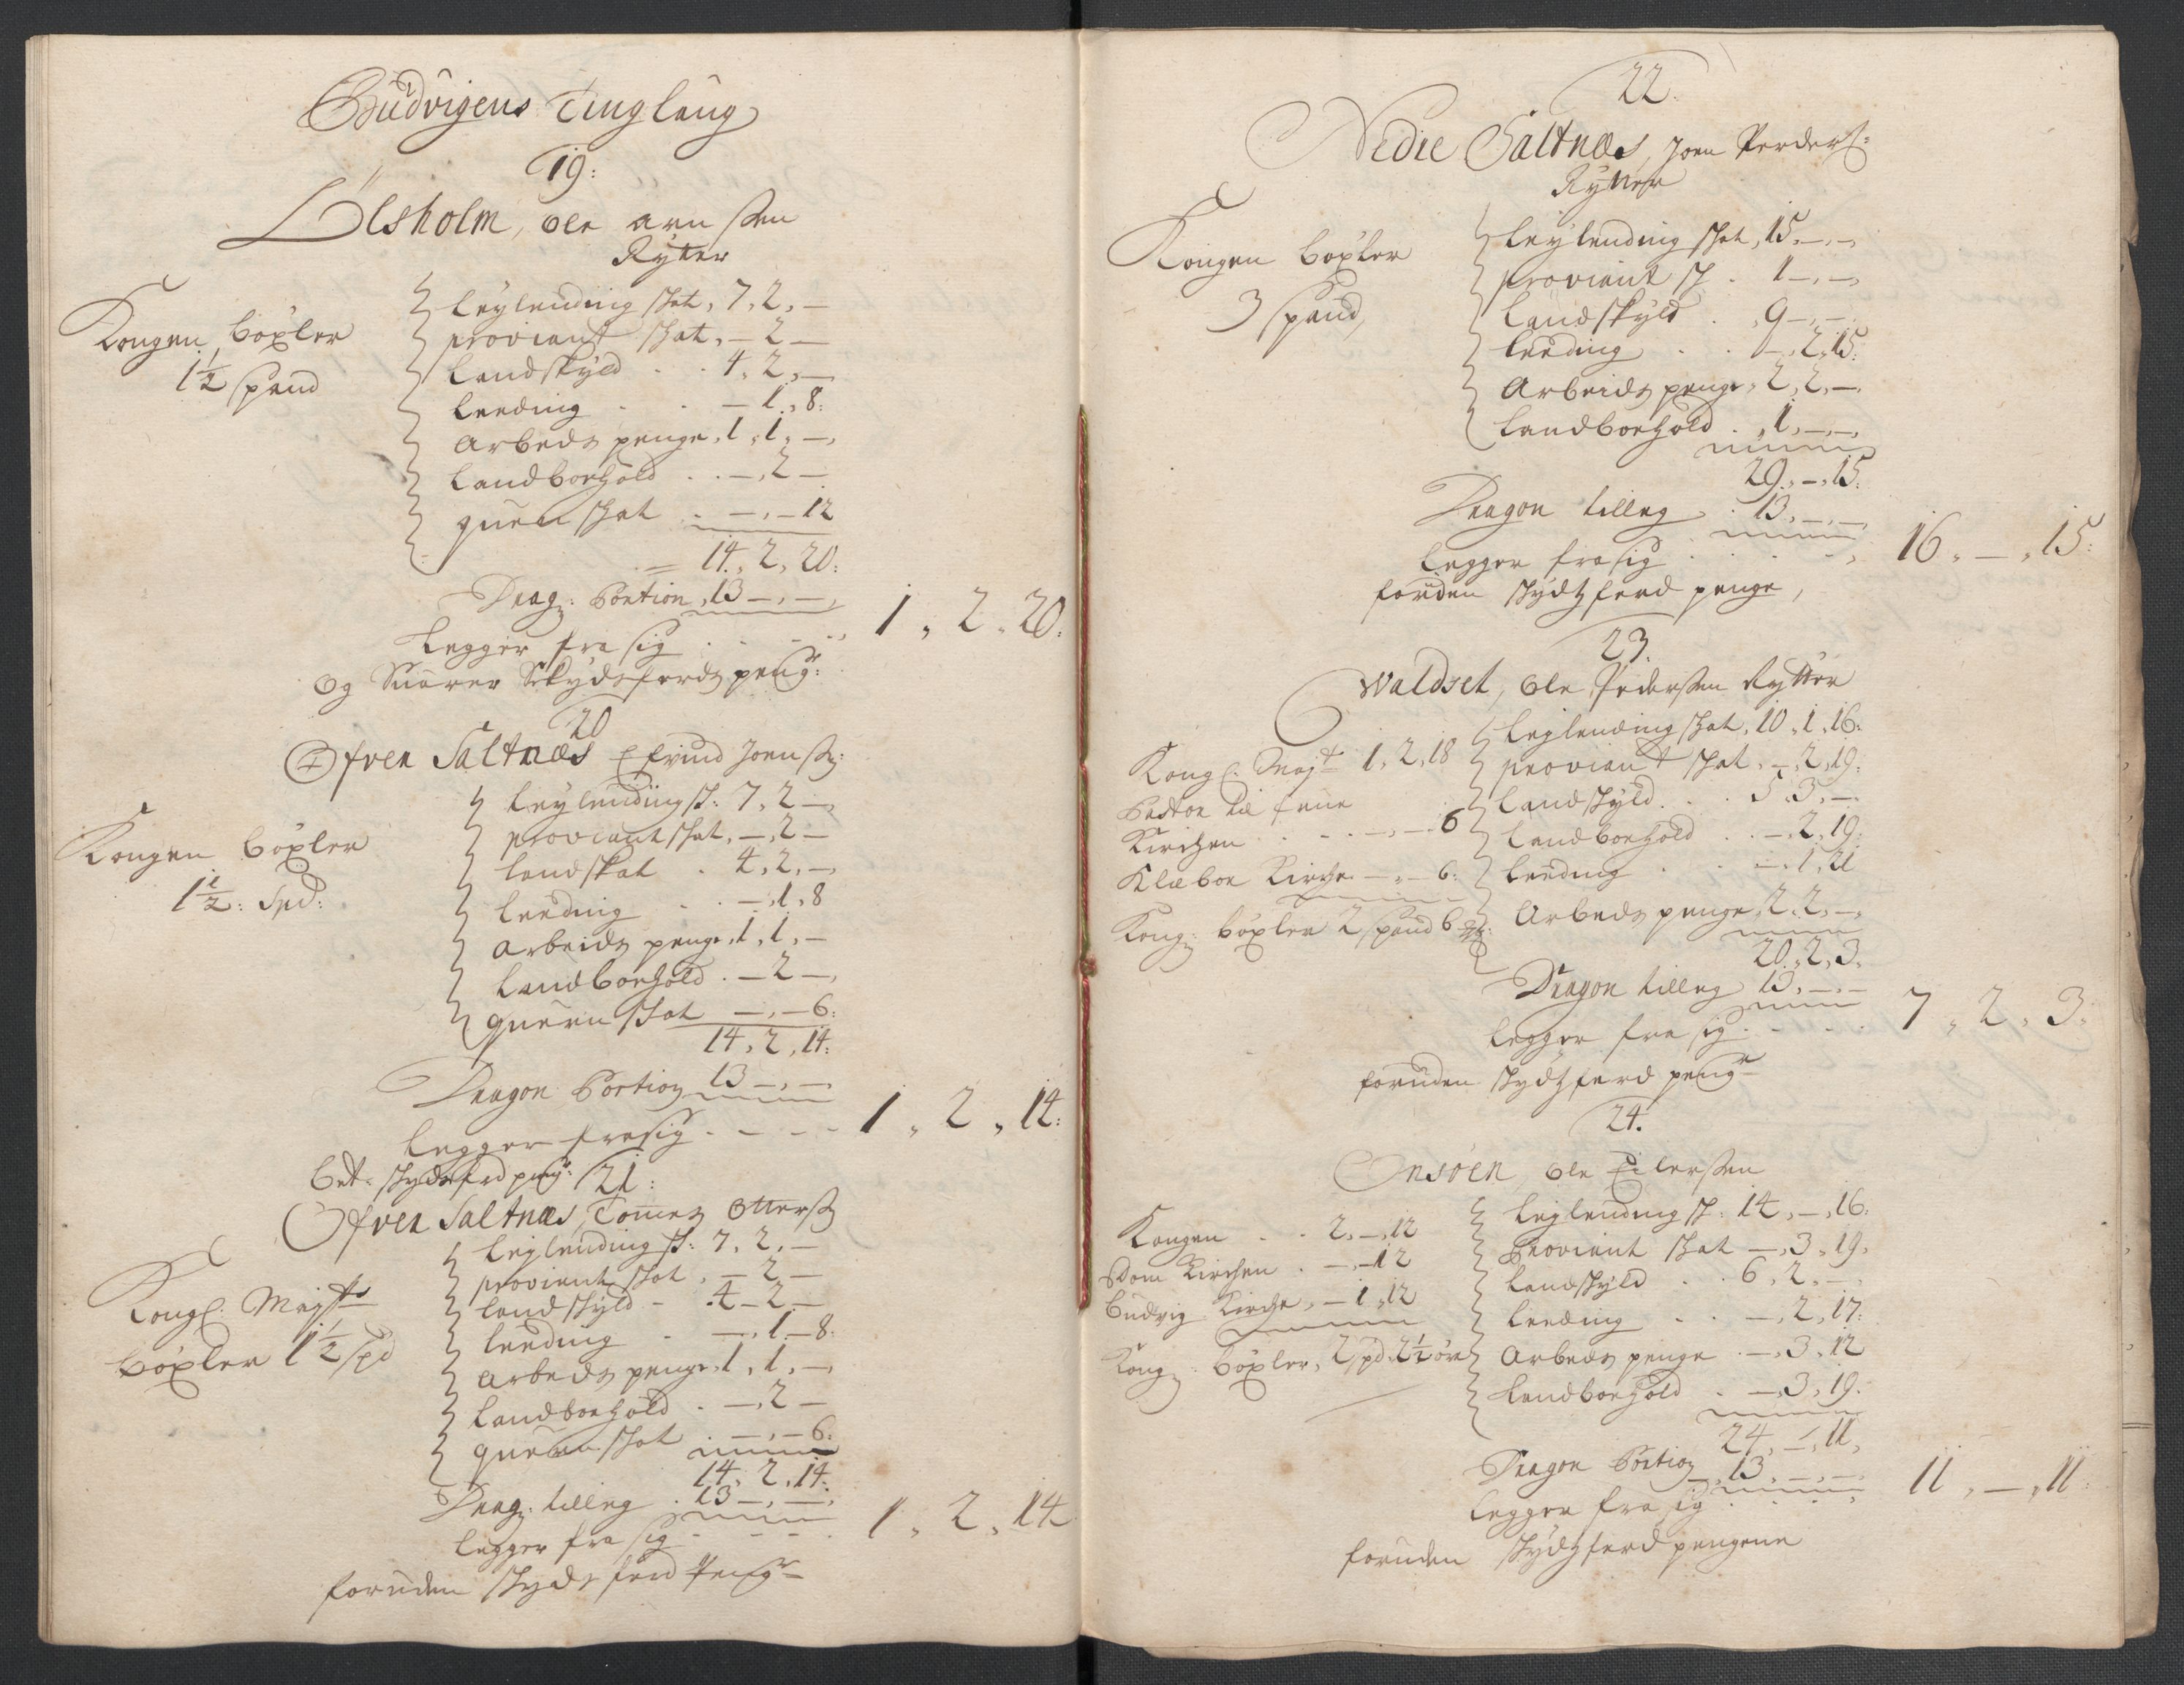 Budvigens Tinglaug
19:
Ölsholm, Ole Arnssen
Rytter
Kongen böxler
1½ spand
Leylending skat, 7, 2, —
proviant skat, — 2 —
Landskyld . . 4, 2, —
Leeding . . — 1, 8:
Arbeds penge, 1, 1, —,
Landboehold . . —, 2 —
quern skat . —, — 12
14, 2, 20:
Drag: Portion, 13 —, —,
Legger fra sig . . . . 1, 2, 20:
Og Svarer Skydsferds peng:
20
Øfver Saltnæs Efvind Joenss:
Kongen böxler
1½: Spd:
Leylending sk: 7, 2 —,
proviant skat, —, 2 —
landskat . 4, 2, —,
Leeding . . —, 1, 8
Arbeids penge, 1, 1, —
Landboehold . — 2 —,
quern skat —, — 6:
14, 2, 14:
Dragon Portion 13 —, —,
Legger fra sig . — — — 1, 2, 14:
bet: skydsferd peng:
21:
Øfver Saltnæs, Tomes Otterss
Kongl: Maytt
böxler 1½ spd
Leylending sk: 7, 2, —
proviant skat, — 2 —
landskyld - . 4 — 2 —
Leeding . —, 1 — 8:
Arbeds penge, 1, 1, —,
Landboehold . —, 2 —
quern skat . —, — 6:
14, 2, 14:
Drag: tilleg . 13 —, —,
Legger fra sig - - - . 1, 2, 14
foruden skyds ferd Peng
22.
Nedre Saltnæs, Joen Pederss:
Rytter
Kongen böxler
3 spand,
Leylending skat, 15, —, —,
proviant sk . 1 —, —,
Landskyld . , 9 —, —.
Leeding . . —, 2, 15:
Arbeids penge, 2, 2, —.
Landboehold . , 1, —, —,
29, —, 15:
Dragon tilleg . 13, —, —,
Legger fra sig . . . . , 16, —, 15:
foruden skydtzferd penge,
23.
Waldset, Ole Pedersen Rytter
Kongl: Mayt 1, 2, 18
Kirchen . . . —, — 6
Klæboe Kirche — — 6:
Kong: böxler 2 spand 6
Leylending skat, 10, 1, 16:
proviant skat, —, 2, 19:
Landskyld . . . 5, 3, —.
Landboehold . . —, 2, 19:
Leeding . . —, 1, 21
Arbeds penge, 2, 2, —,
20, 2, 3,
Dragon tilleg 13, —, —
Legger fra sig . . . . 7, 2, 3:
foruden skydtzferd peng
24.
Onsöen Ole Eilerssen
Kongen . . 2, —, 12
Dom Kirchen . —, — 12
Budvig Kirche, — 1, 12
Kong: böxler, 2 spd 2½ öre
Leylending sk: 14, —, 16:
Proviant skat —, 3, 19,
Landskyld . . 6, 2, —.
Leeding . . —, 2, 17:
Arbeds penge . —, 3, 12
Landboehold . —, 3, 19:
24, —, 11,
Dragon Portion, 13, —, —,
Legger fra sig . . . 11, —, 11:
foruden skydtzferd pengene